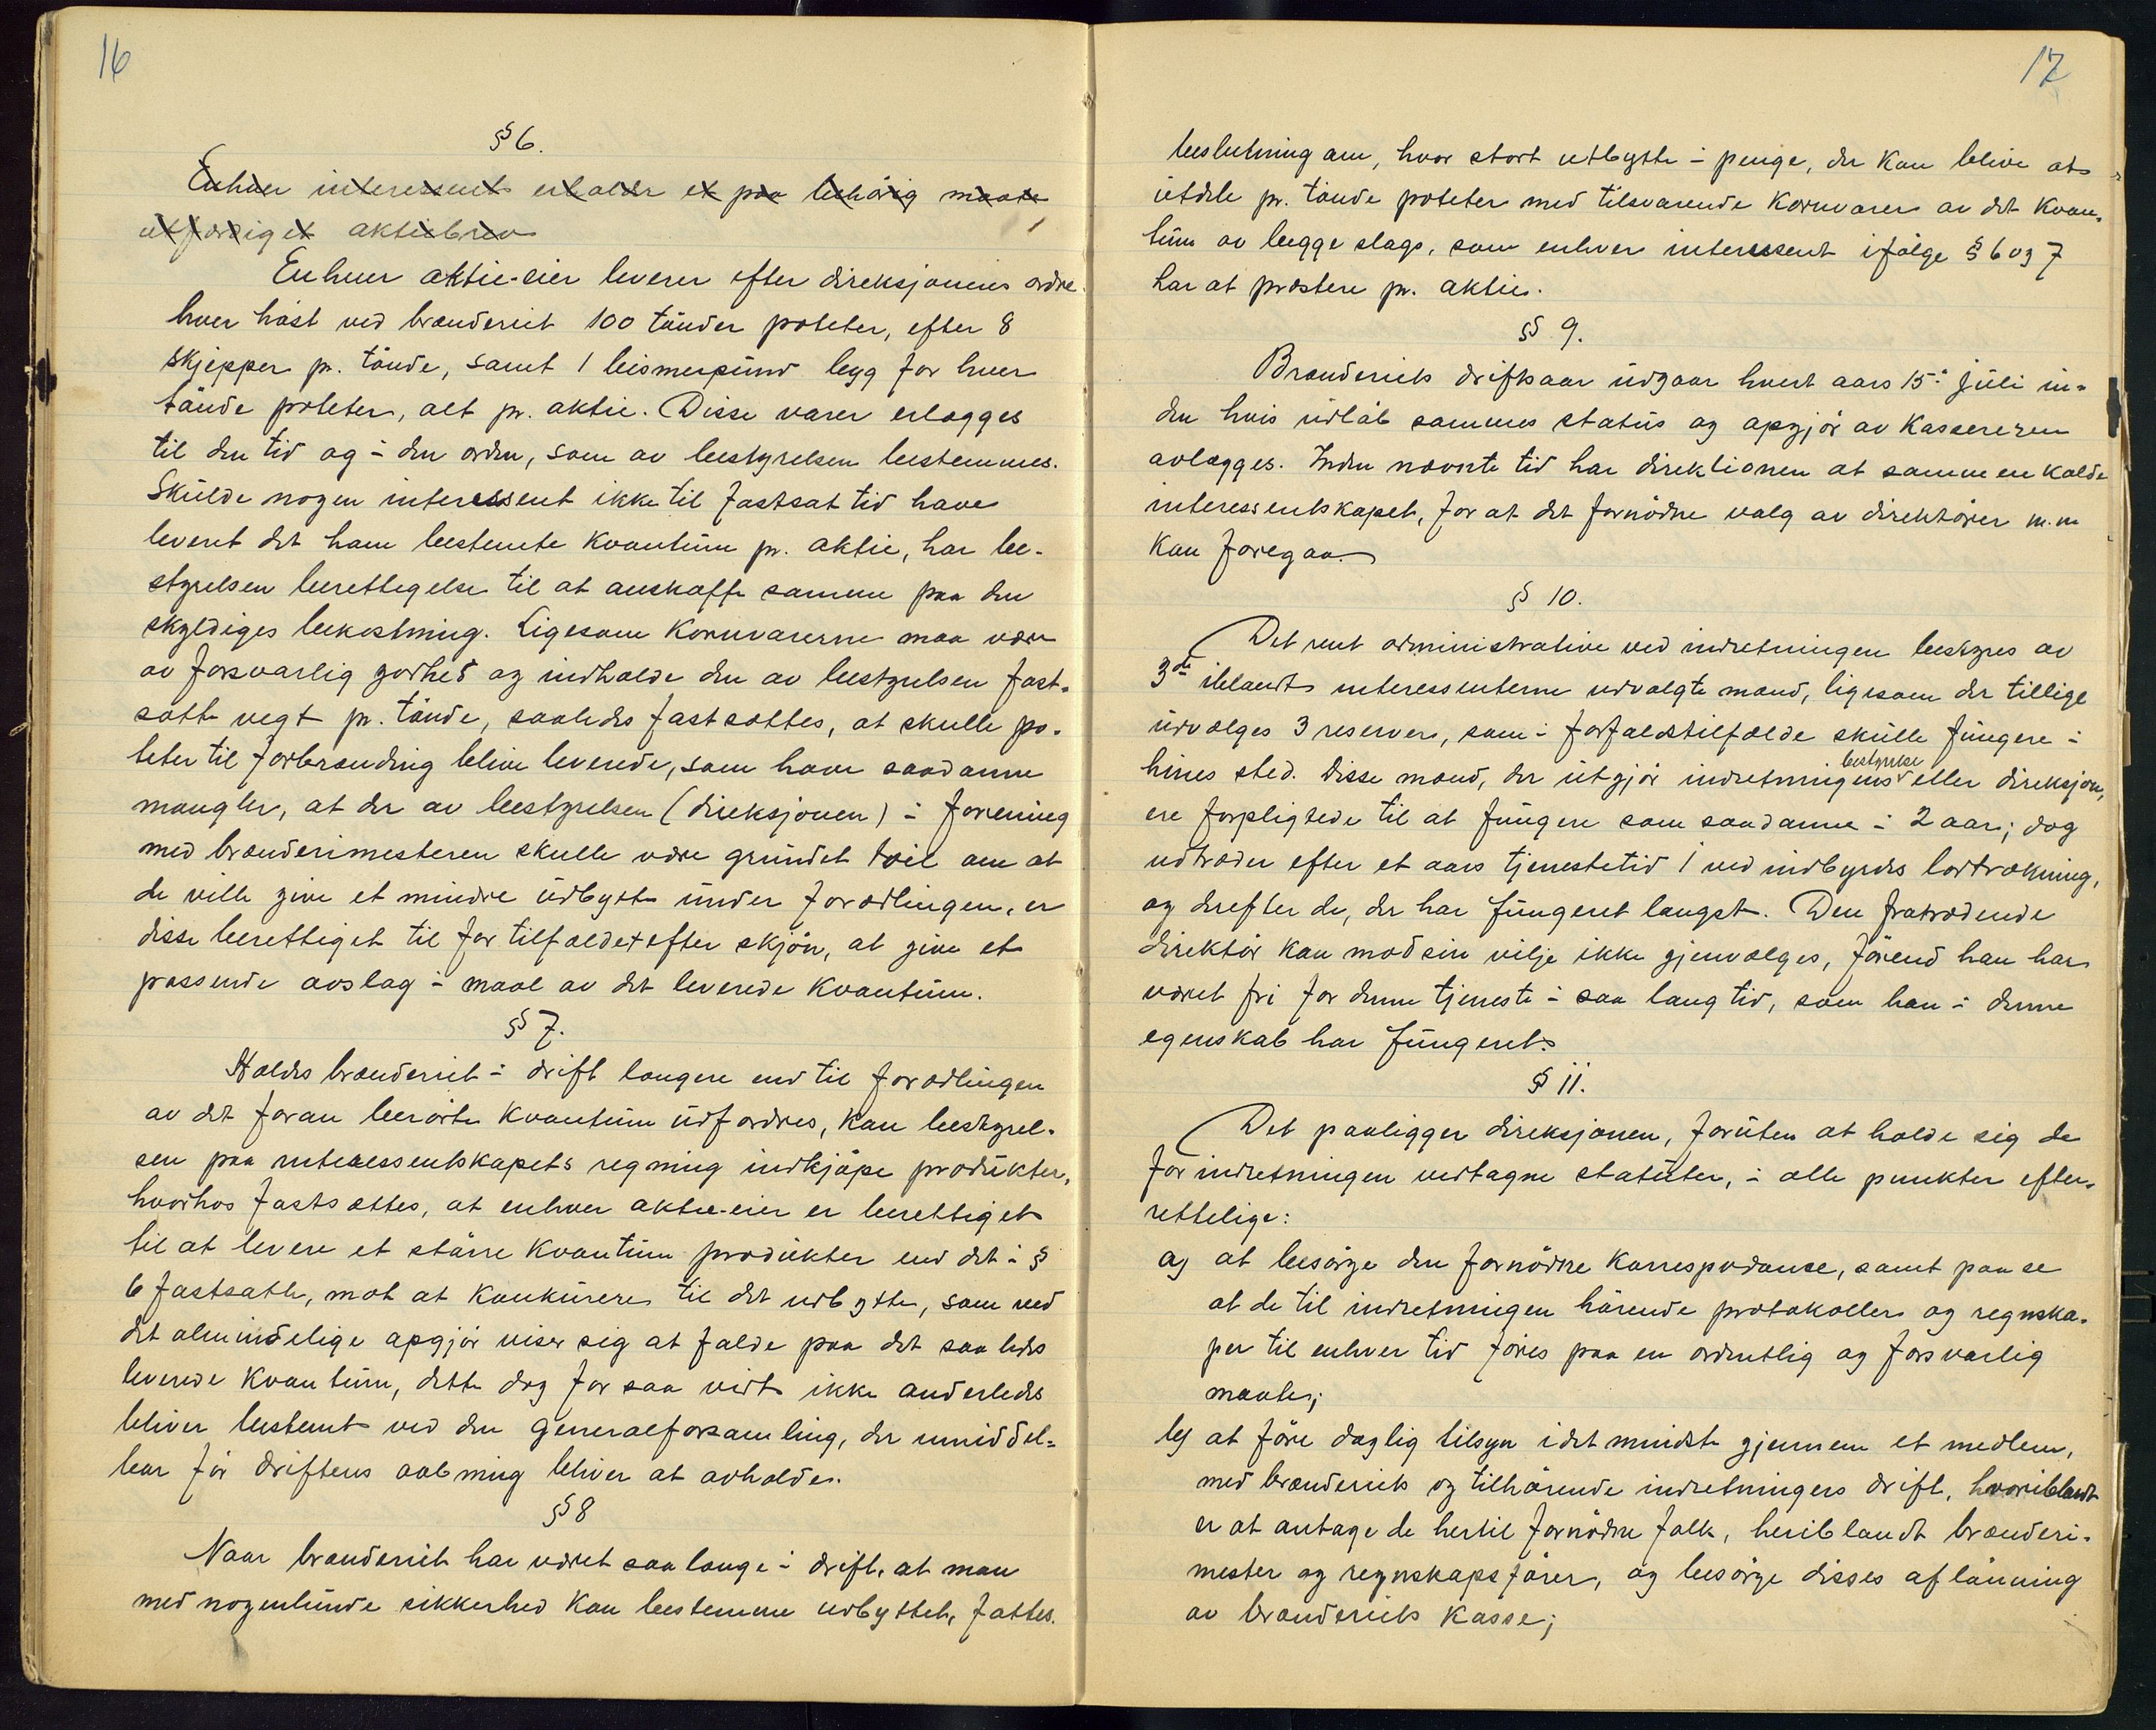 16
§ 6.
Enhver interessent erholder et paa behørig maate
utfærdiget aktiebrev
Enhver aktie-eier leverer efter direksjonens ordre
hver høst ved brænderiet 100 tønder poteter, efter 8
skjepper pr. tønde, samt 1 bismerpund byg for hver
tønde poteter, alt pr. aktie. Disse varer erlægges
til den tid og i den orden, som av bestyrelsen bestemmes.
Skulde nogen interessent ikke til fastsat tid have
leveret det ham bestemte kvantum pr. aktie, har be-
styrelsen berettigelse til at anskaffe samme paa den
skyldiges bekostning. Ligesom kornvarerne maa være
av forsvarlig godhet og indholde den av bestyrelsen fast-
satte vegt pr. tønde, saaledes fastsættes, at skulle po-
teter til forbrænding blive leverede, som have saadanne
mangler, at der av bestyrelsen (direksjonen) i forening
med brænderimesteren skulle være grundet tvil om at
de ville give et mindre udbytte under forædlingen, er
disse berettiget til for tilfældet efter skjøn, at give et
passende avslag i maal av det leverede kvantum.
§ 7.
Holdes brænderiet i drift længere end til forædlingen
av det foran berørte kvantum udfordres, kan bestyrel-
sen paa interessentskapets regning indkjøpe produkter,
hvorhos fastsættes, at enhver aktie-eier er berettiget
til at levere et større kvantum produkter end det i §
6 fastsatte, mot at konkurere til det udbytte, som ved
det almindelige opgjør viser sig at falde paa det saaledes
leverede kvantum, dette dog for saa vidt ikke anderledes
bliver bestemt ved den generalforsamling, der umiddel-
bar før driftens aabning bliver at avholde.
§ 8
Naar brænderiet har været saa længe i drift, at man
med nogenlunde sikkerhed kan bestemme udbyttet, fattes
17
beslutning om, hvor stort utbytte i penge, der kan blive at
utdele pr. tønde poteter med tilsvarende kornvarer av det kvan-
tum av begge slags, som enhver interessent ifølge § 6 og 7
har at præstere pr. aktie.
§ 9.
Brænderiets driftsaar udgaar hvert aars 15de juli in-
den hvis udløb sammes status og opgjør av kassereren
avlægges. Inden nævnte tid har direktionen at sammenkalde
interessentskapet, for at det fornødne valg av direktører m.m
kan foregaa.
§ 10.
Det rent administrative ved indretningen bestyres av
3de iblandt interessenterne udvalgte mænd, ligesom der tillige
udvælges 3 reserver, som i forfaldstilfælde skulle fungere i
hines sted. Disse mænd, der utgjør indretningens bestyrelse eller direksjon,
ere forpligtede til at fungere som saadanne i 2 aar; dog
udtræder efter et aars tjenestetid 1 ved indbyrdes lodtrækning,
og derefter de, der har fungeret længst. Den fratrædende
direktør kan mod sin vilje ikke gjenvælges, førend han har
været fri for denne tjeneste i saa lang tid, som han i denne
egenskab har fungeret.
§ 11.
Det paaligger direksjonen, foruten at holde sig de
for indretningen vedtagne statuter, i alle punkter efter-
rettelige:
a) at besørge den fornødne korrespodanse, samt paase
at de til indretningen hørende protokoller og regnska-
per til enhver tid føres paa en ordentlig og forsvarlig
maate;
b) at føre daglig tilsyn i det mindste gjennem et medlem,
med brænderiets og tilhørende indretningers drift, hvoriblandt
er at antage de hertil fornødne folk, heriblandt brænderi-
mester og regnskapsfører, og besørge disses aflønning
av brænderiets kasse;